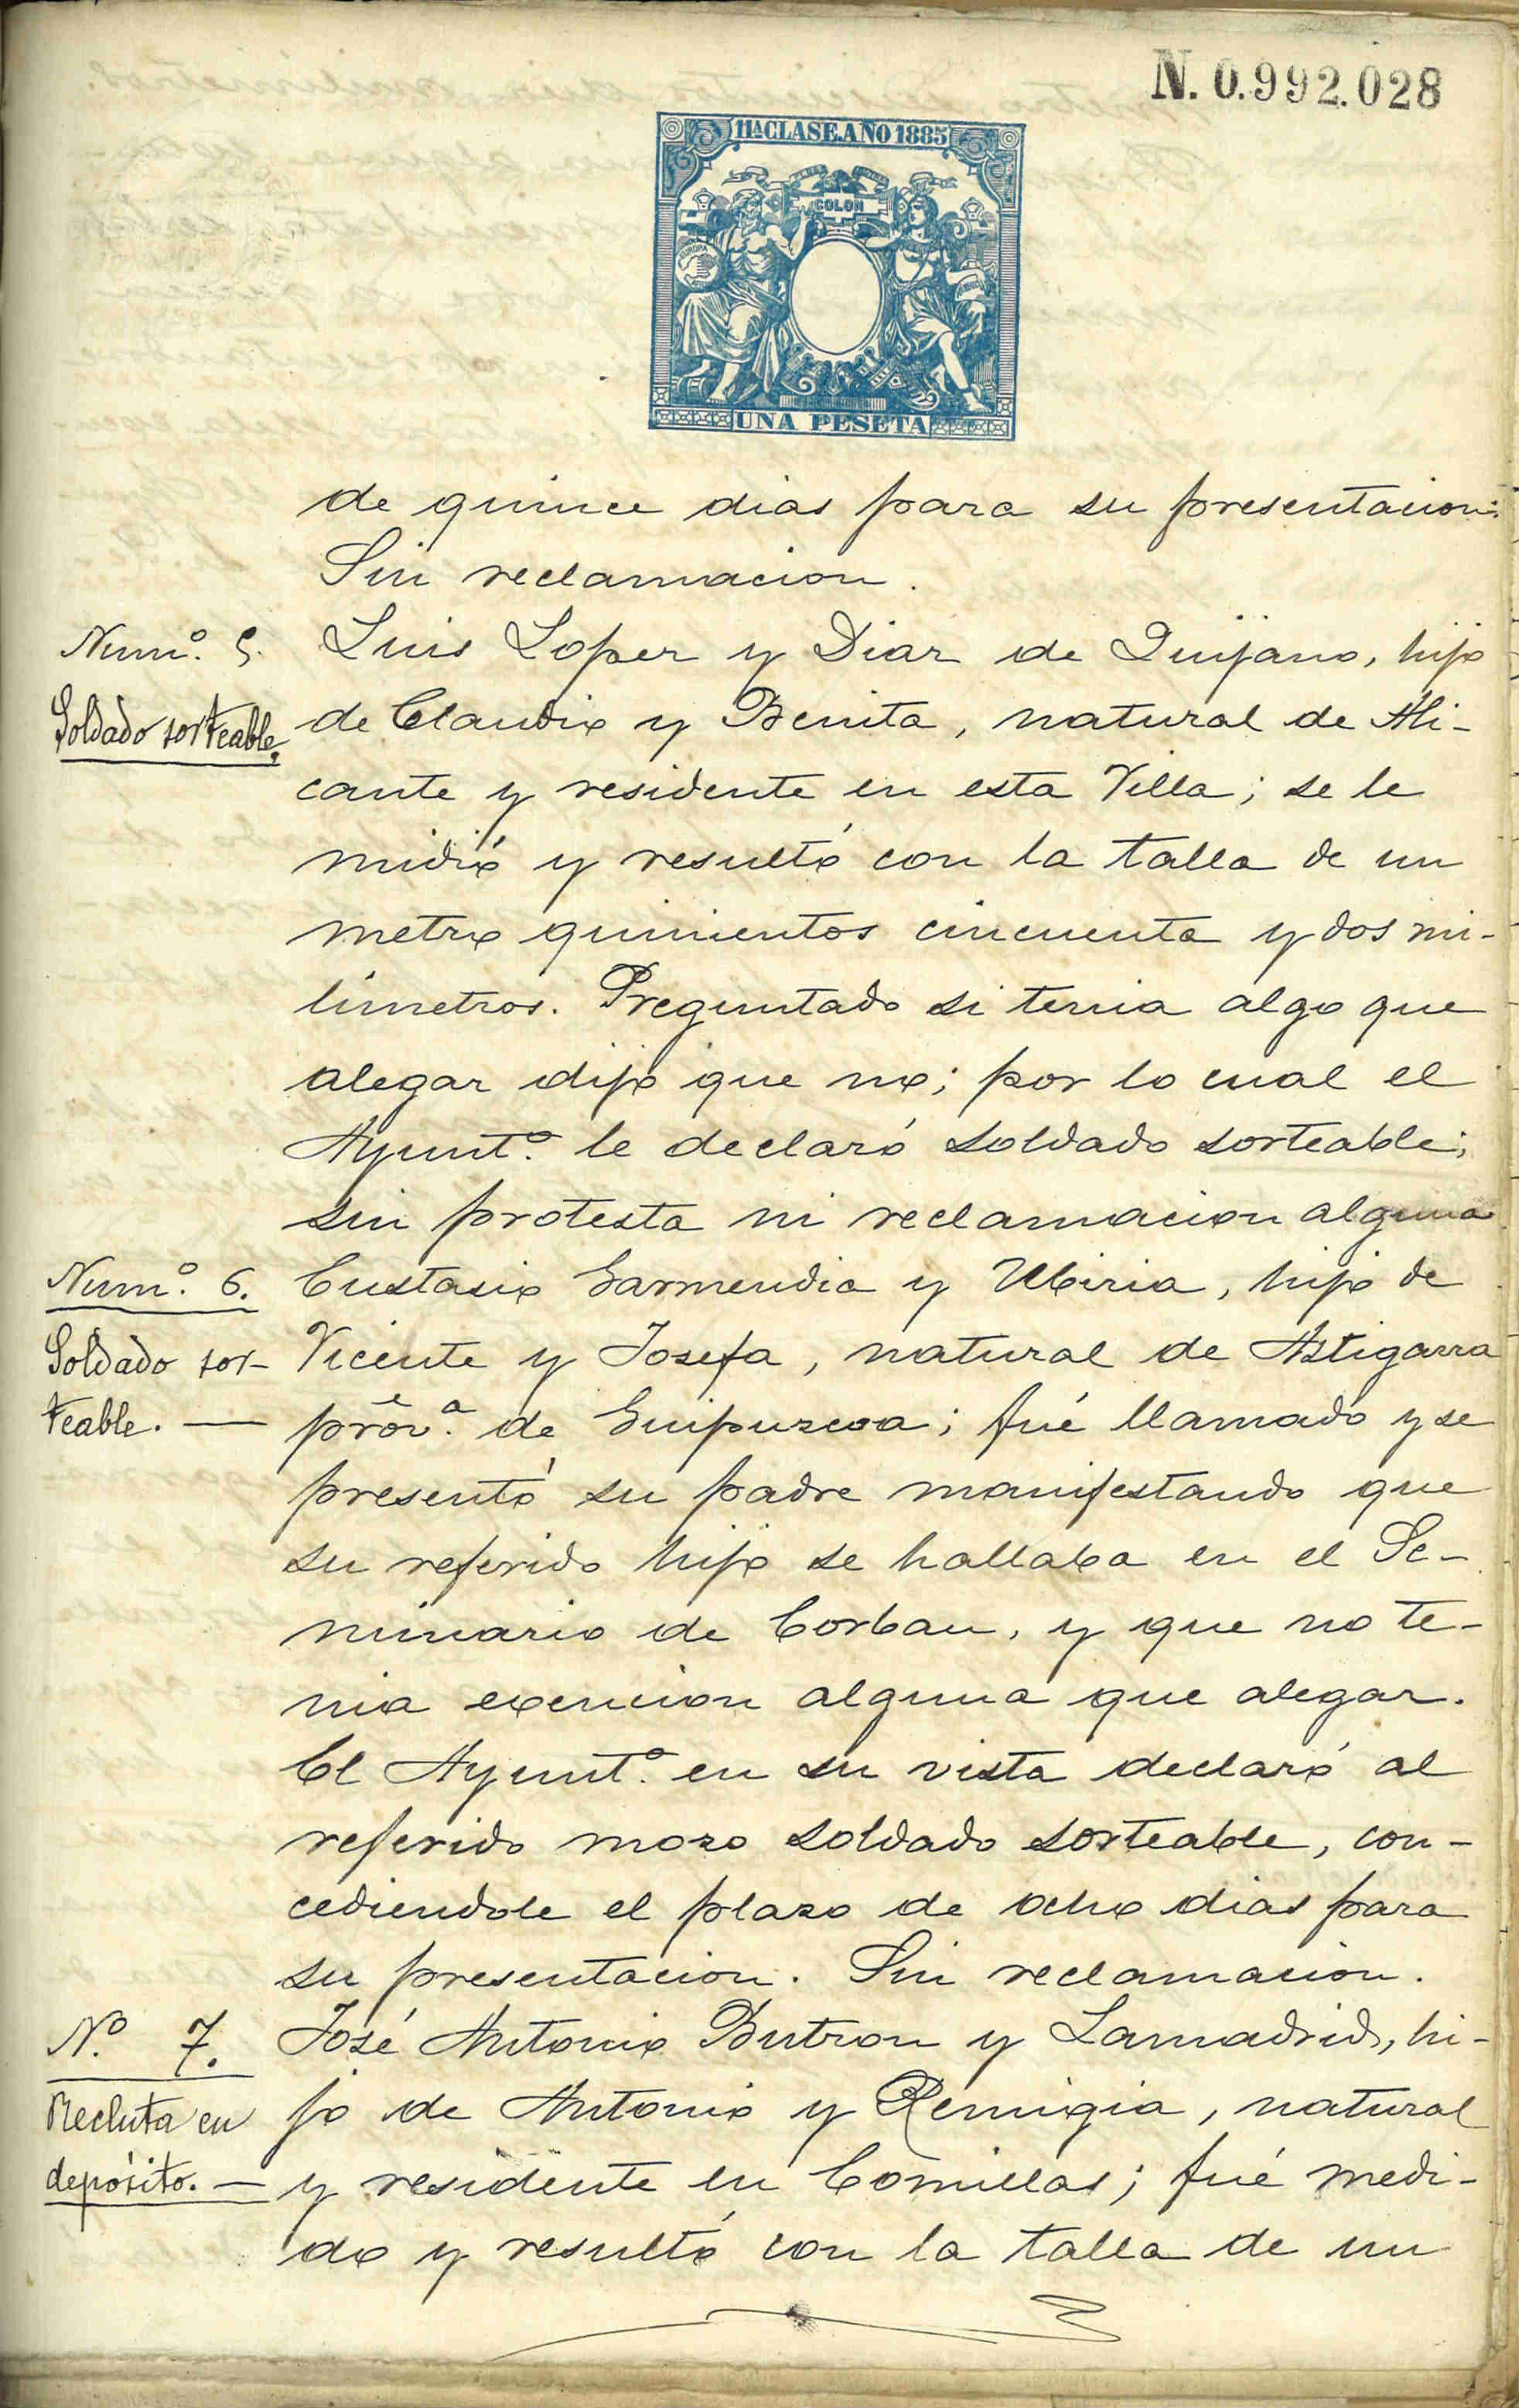 N. 0.992.028
11ª CLASE. AÑO 1885
COLON
EUROPA
UNA PESETA
de quince dias para su presentacion.
Sin reclamacion.
Num.º 5. Luis Lopez y Diaz de Quijano, hijo
Soldado sorteable. de Claudio y Benita, natural de Ali-
cante y residente en esta Villa; se le
midió y resultó con la talla de un
metro quinientos cincuenta y dos mi-
límetros. Preguntado si tenia algo que
alegar dijo que no; por lo cual el
Ayunt.º le declaró soldado sorteable;
sin protesta ni reclamacion alguna
Num.º 6. Eustasio Garmendia y Ubiria, hijo de
Soldado sor- Vicente y Josefa, natural de Astigarra
teable. — prov.ª de Guipuzcoa; fué llamado y se
presentó su padre manifestando que
su referido hijo se hallaba en el Se-
minario de Corban, y que no te-
nia exencion alguna que alegar.
El Ayunt.º en su vista declaró al
referido mozo soldado sorteable, con-
cediendole el plazo de ocho dias para
su presentacion. Sin reclamacion.
N.º 7. José Antonio Butron y Lamadrid, hi-
Recluta en jo de Antonio y Remigia, natural
depósito. — y residente en Comillas; fué medi-
do y resultó con la talla de un